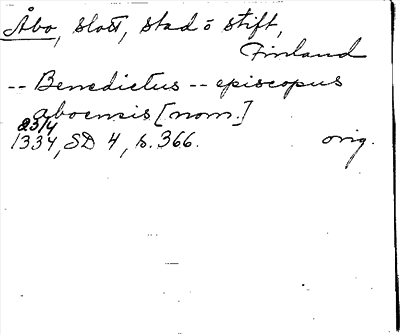 Åbo, slott, stad o stift,
Finland
-- Benedictus -- episcopus
aboensis [nom.]
23/4
1334, SD 4, s. 366. orig.